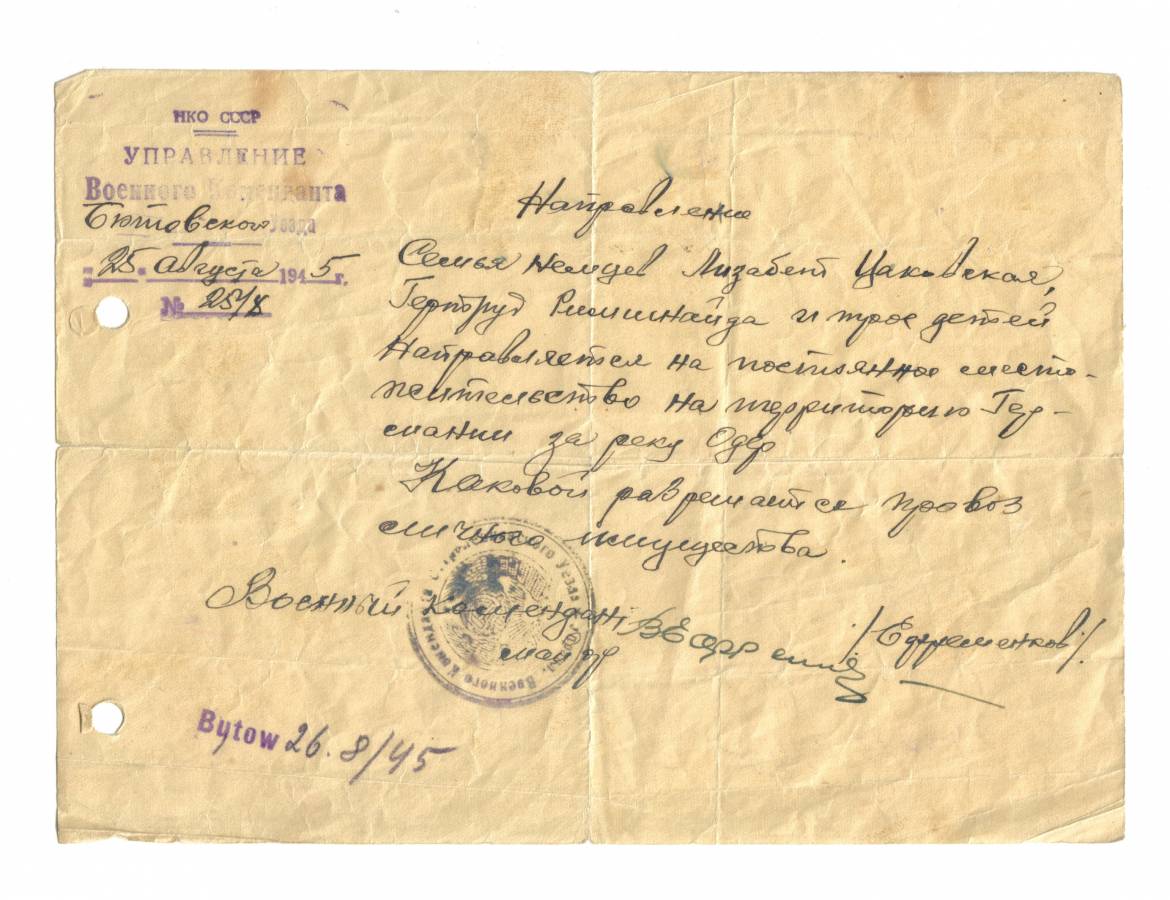 НКО СССР
УПРАВЛЕНИЕ
Военного Коменданта
Бютовского Уезда
"25" августа 1945 г.
№ 25/8
Направление
Семья немцев Лизабент Цаковская,
Гертруд Риммнайда и трое детей
направляется на постоянное место-
жительство на территорию Гер-
мании за реку Одер
Каковой разрешается провоз
личного имущества.
Военный комендант
майор
/Ефременков/
Военного Уезда
Военного Коменданта
Bytow 26. 8/45